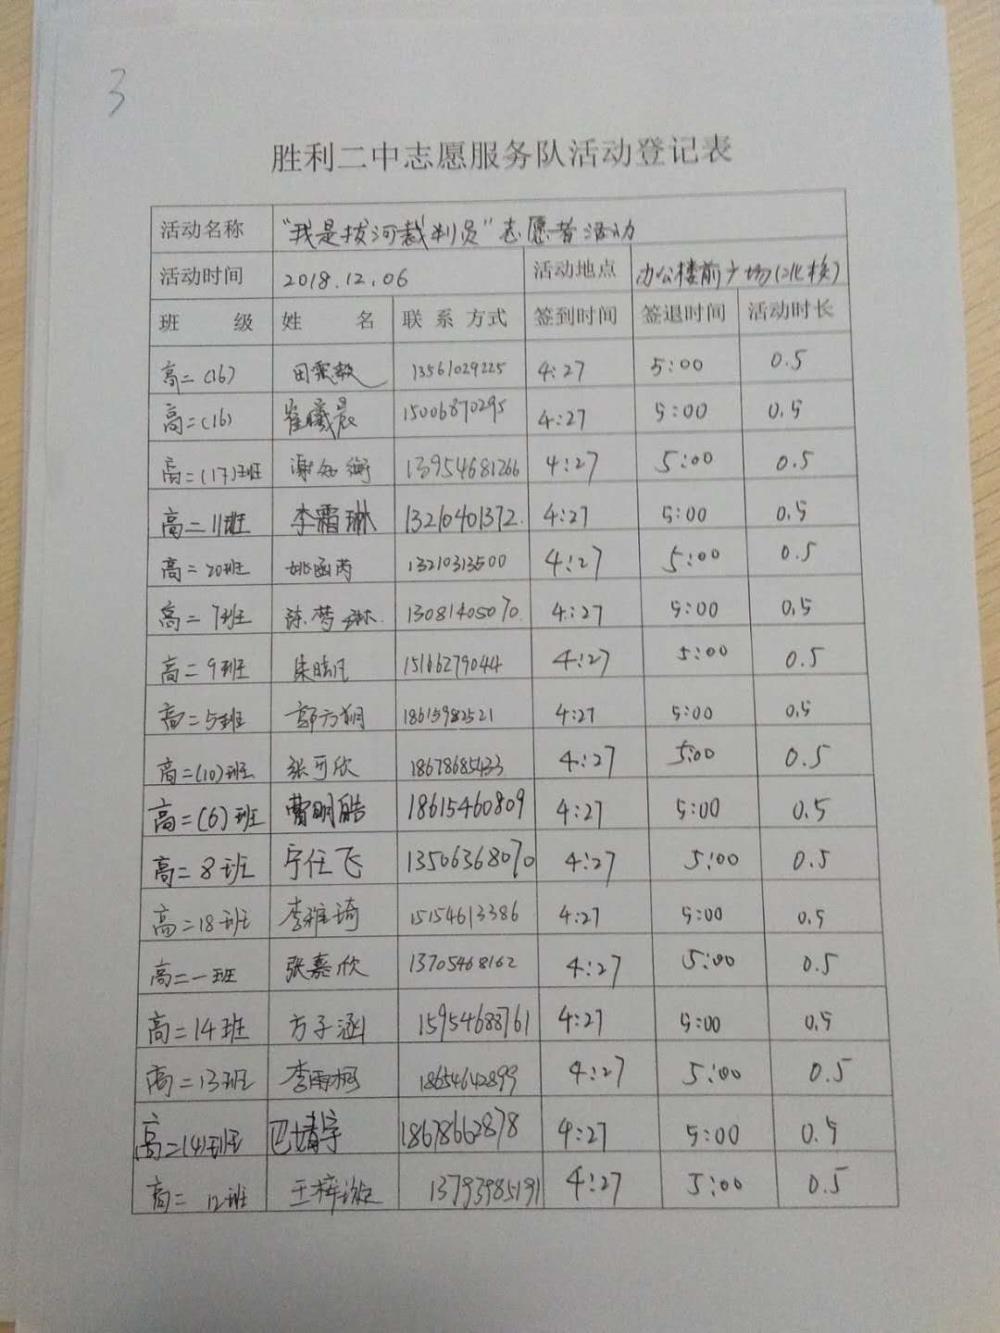 3
胜利二中志愿服务队活动登记表
活动名称 "我是拔河裁判员"志愿者活动
活动时间 2018.12.06 活动地点 办公楼前广场(北校)
班 级 姓 名 联系方式 签到时间 签退时间 活动时长
高二(16) 田 13561029225 4:27 5:00 0.5
高二(16) 崔曦晨 15006870295 4:27 5:00 0.5
高二(17)班 谢 13954681266 4:27 5:00 0.5
高二11班 李霜琳 13210401372 4:27 5:00 0.5
高二20班 姚函芮 13210313500 4:27 5:00 0.5
高二7班 陈梦琳 13081405070 4:27 5:00 0.5
高二9班 朱晓凡 15166279044 4:27 5:00 0.5
高二5班 郭方朔 18615982521 4:27 5:00 0.5
高二(10)班 张可欣 18678685433 4:27 5:00 0.5
高二(6)班 曹明皓 18615460809 4:27 5:00 0.5
高二8班 宁任飞 13506368070 4:27 5:00 0.5
高二18班 李雅琦 15154613386 4:27 5:00 0.5
高二一班 张嘉欣 13705468162 4:27 5:00 0.5
高二14班 方子涵 15954688761 4:27 5:00 0.5
高二13班 李雨柯 18654642899 4:27 5:00 0.5
高二(4)班 巴婧宇 18678662878 4:27 5:00 0.5
高二12班 王梓漩 13793985191 4:27 5:00 0.5